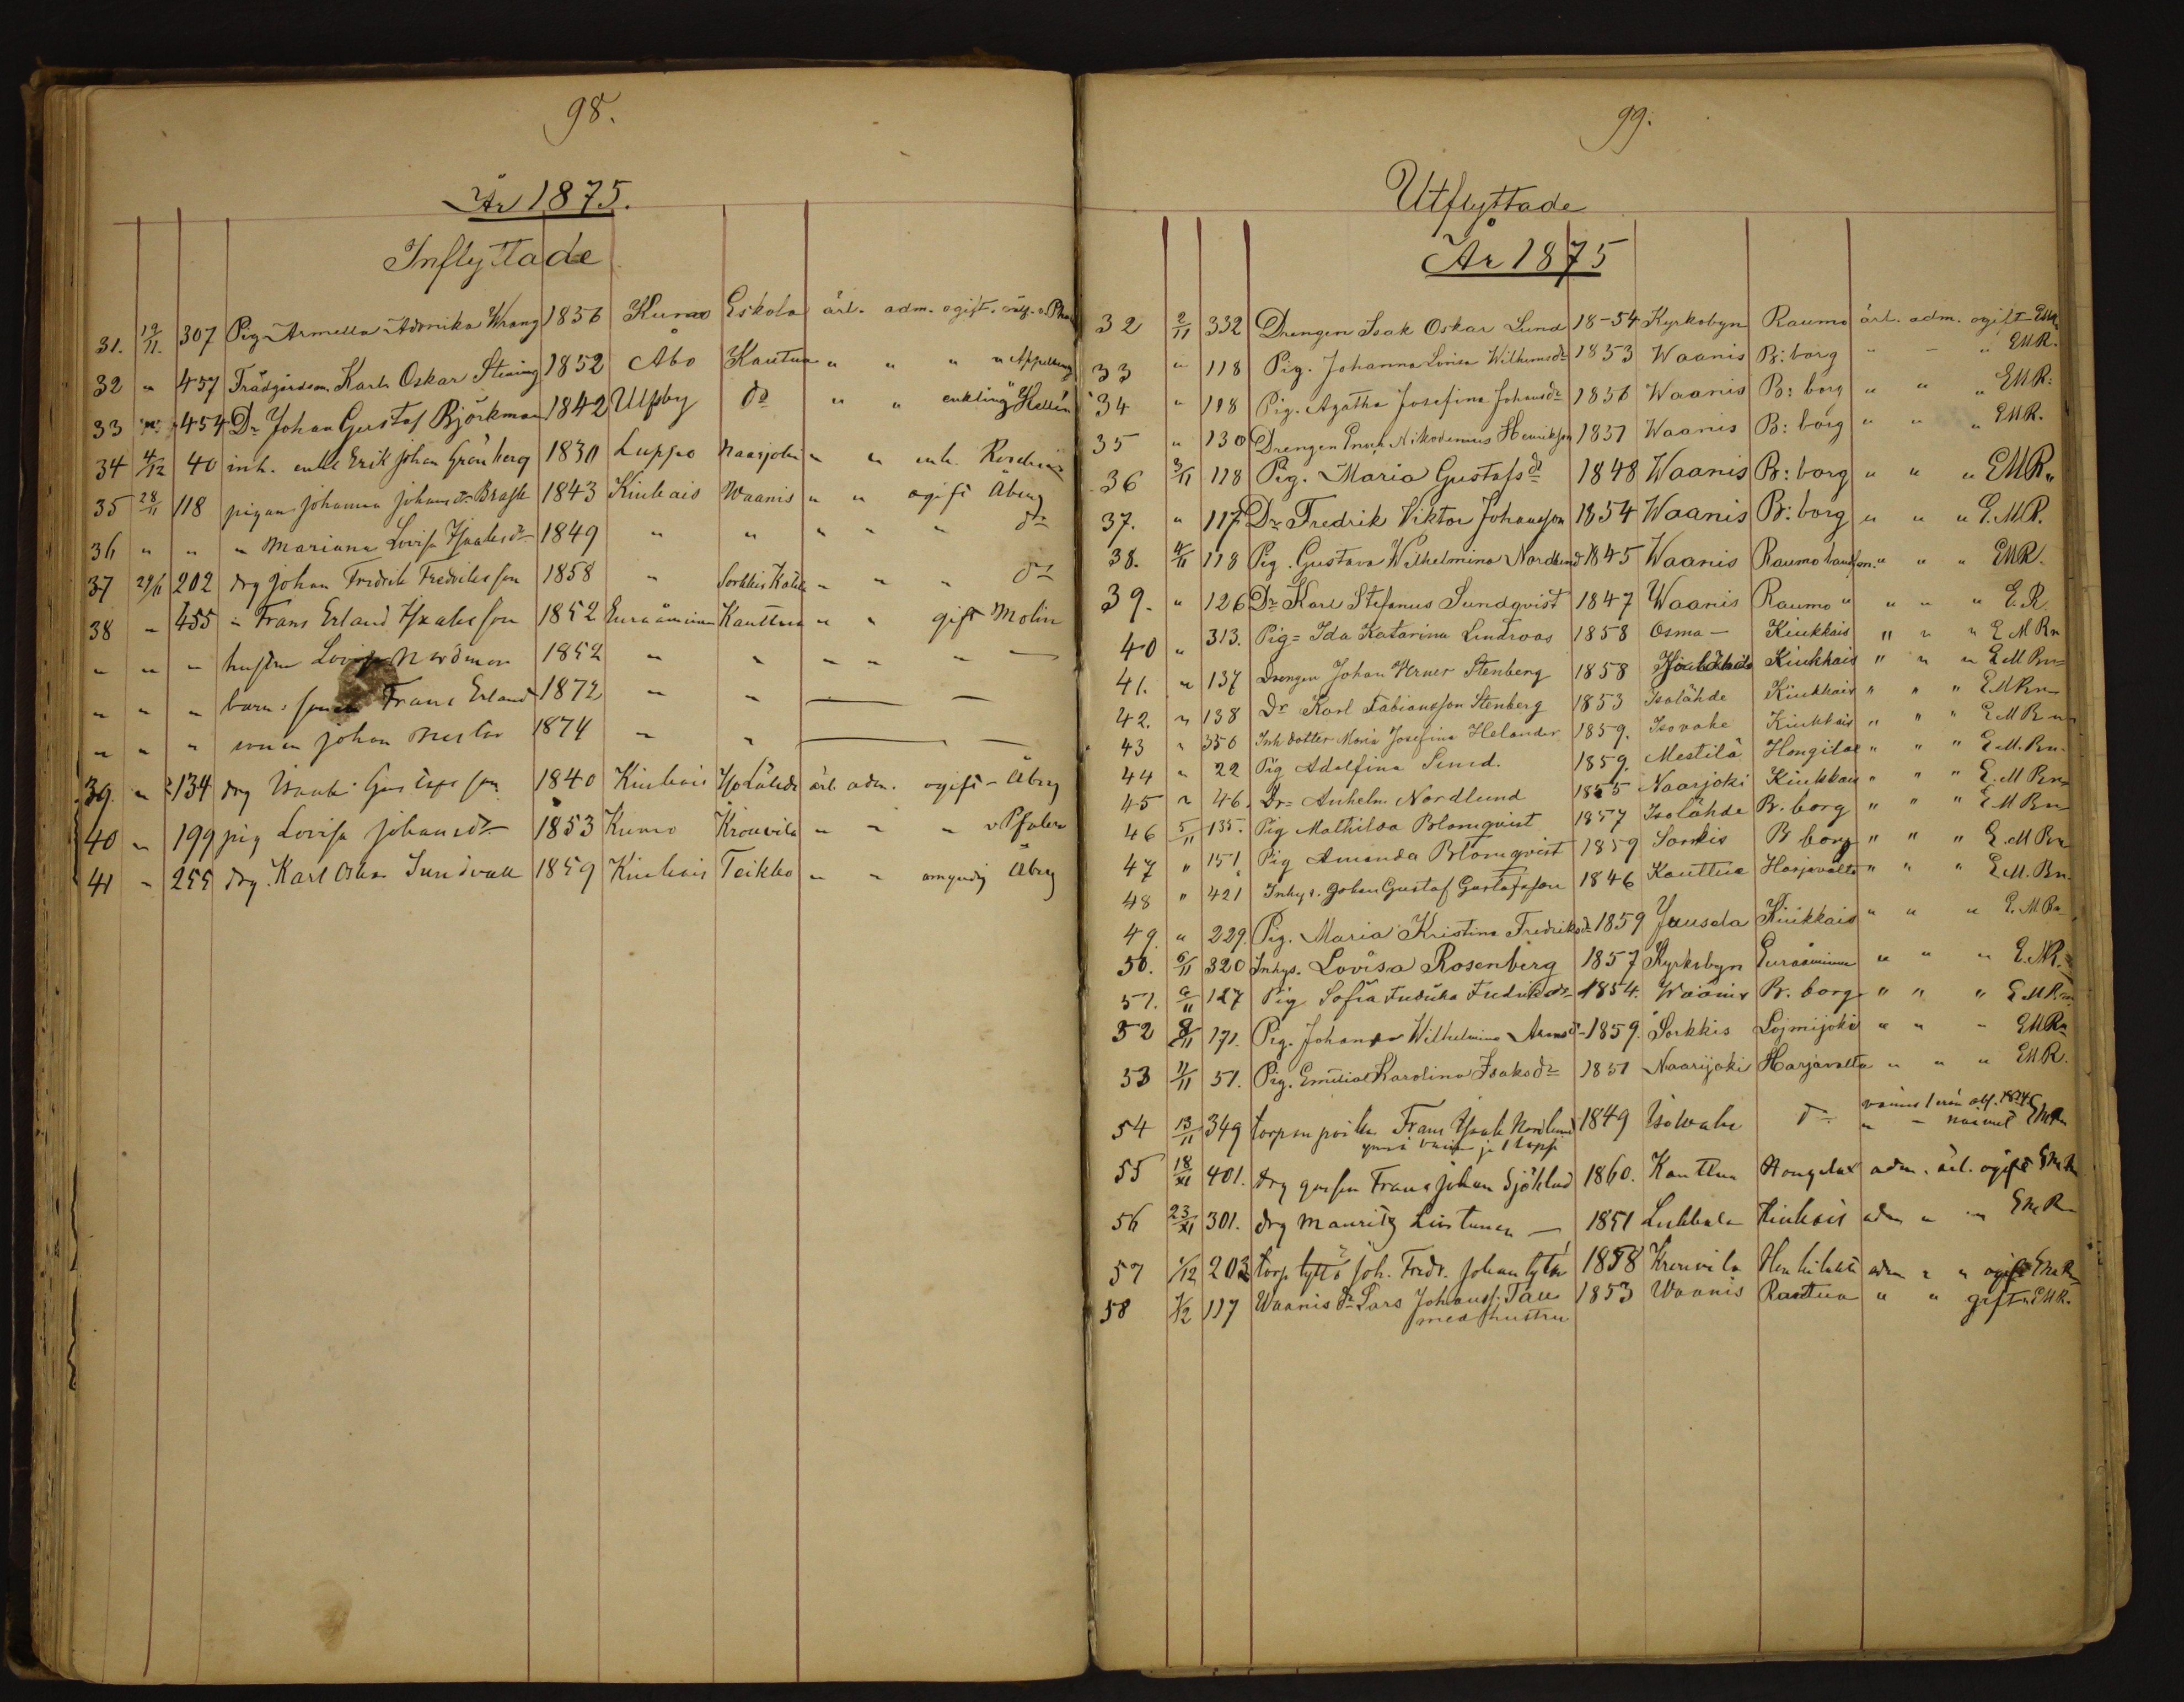 98.
År 1875.
Inflyttade
31. 19/11. 307 Pig Armella Adonika Wrang 1856 Kumo Eskola ärl. adm. ogift.
32 " 457 Trädgårdsm. Karl Oskar 1852 Åbo Kautua " " "
33 454 Dr Johan Gustaf Björkman 1842 Ulfsby do " " enkling Hellén
34 4/12 40 inh. enkl Erik Johan Grönberg 1830 Luppo Naarjoki " " enk.
35 28/11 118 pigan Johanna Johansdr 1843 Kiukais Waanis " " ogift Åberg
36 " " " Mariana Lovisa Isaksdr 1849 " " " " " do
37 29/11 202 drg Johan Fredrik Fredriksson 1858 " Sorkkis " " " do
38 " 455 " Frans Erland Isaksson 1852 Euraåminne Kauttua " " gift Molin
" " " hustru Lovisa Nordman 1852 " " " " " —
" " " barn: Frans Erland 1872 " " — —
" " " Johan Nestor 1874 " " — —
39. " 134 drg Isak Gustafsson 1840 Kiukais Isolähde ärl. adm. ogift - Åberg
40 " 199 pig Lovisa Johansdr 1853 Kumo Krouvila " " " v Pfaler
41 " 255 drg. Karl Oskar Sundvall 1859 Kiukais Teikko " " omyndig Åberg
99.
Utflyttade
År 1875
32 2/11 332 Drengen Isak Oskar Lund 18-54 Kyrkobyn Raumo ärl. adm. ogift EMR
33 " 118 Pig. Johanna Lovisa Wilhemsdr 1853 Waanis B:borg " - " EMR.
34 " 118 Pig. Agatha Josefina Johansdr 1856 Waanis B:borg " " " EMR.
35 " 130 Drengen Enoch Nikodemus Henriksson 1851 Waanis B:borg " " " EMR.
36 3/11 118 Pig. Maria Gustafsdr 1848 Waanis B:borg " " " EMR.
37. " 117 Dr. Fredrik Viktor Johansson 1854 Waanis B:borg " " " E.M.R.
38. 4/11 118 Pig. Gustava Wilhelmina Nordlund 1845 Waanis Raumo landsfm. " " " EMR.
39. " 126 Dr Karl Stefanus Sundqvist 1847 Waanis Raumo " " " " E.R.
40 " 313. Pig= Ida Katarina Lindroos 1858 Osma - Kiukkais " " " E M Rn
41. " 137 Drengen Johan Werner Stenberg 1858 Isolähde Kiukkais " " " E M Rn
42. " 138 Dr Karl Fabiansson Stenberg 1853 Isolähde Kiukkais " " " EMRn
43 " 350 Inh dotter Maria Josefina Helander 1859. Isovahe Kiukkais " " " E M Rn
44 " 22 Pig Adolfina Sund. 1859. Mestilä Hongilax " " " E.M.Rn.
45 " 46. Dr= Anhelm Nordlund 1855 Naarjoki Kiukkais " " " E.M Rn
46 5/11 135. Pig Mathilda Blomqvist 1857 Isolähde B.borg " " " E M Rn
47 " 151 Pig Amanda Blomqvist 1859 Sorkis B borg " " " E.M Rn
48 " 421 Inhys. Johan Gustaf Gustafsson 1846 Kauttua Harjavalta " " " E.M.Rn.
49. " 229. Pig. Maria Kristina Fredriksdr 1859 Yausda Kiukkais " " " E.M.Rn
50. 6/11 320 Inhys. Lovisa Rosenberg 1857 Kyrkobyn Euraåminne " " " E.MR.
51. 6/11 127 Pig Sofia Fredrika Fredriksdr 1854. Waanis B. borg " " " E M R
52 8/11 171. Pig. Johanna Wilhelmina 1859. Sorkkis Loimijoki " " - EMRn
53 11/11 51. Pig. Emilia Karolina Isaksdr 1851 Naarijoki Harjavalta " " " EMR.
54 13/11 349 torpan poika Frans Isak Nordlund 1849 Isovahe do " - nainut EMRn
55 18/XI 401. drg gossen Frans Johan Sjöblad 1860. Kauttua Hongelax adm. ärl. ogift EMRn
56 23/XI 301. drg Mauritz Liistunen — 1851 Lukkala Kiukais adm " " EMR
57 1/12 203 torp tyttö Joh. Fredr. Johan tytär 1858 Krouvila adm " " ogift EMRn
58 1/12 117 Waanis dr Lars Johanss: Tall 1853 Waanis Rautua " " gift EMR.
med hustru